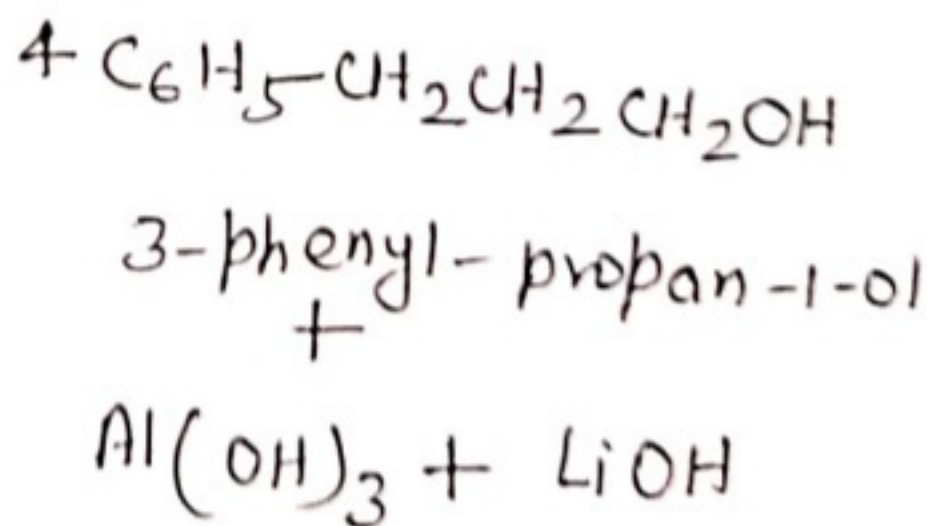 4 C₆H₅-CH₂CH₂CH₂OH
3-phenyl-propan-1-ol
+
Al(OH)₃ + LiOH